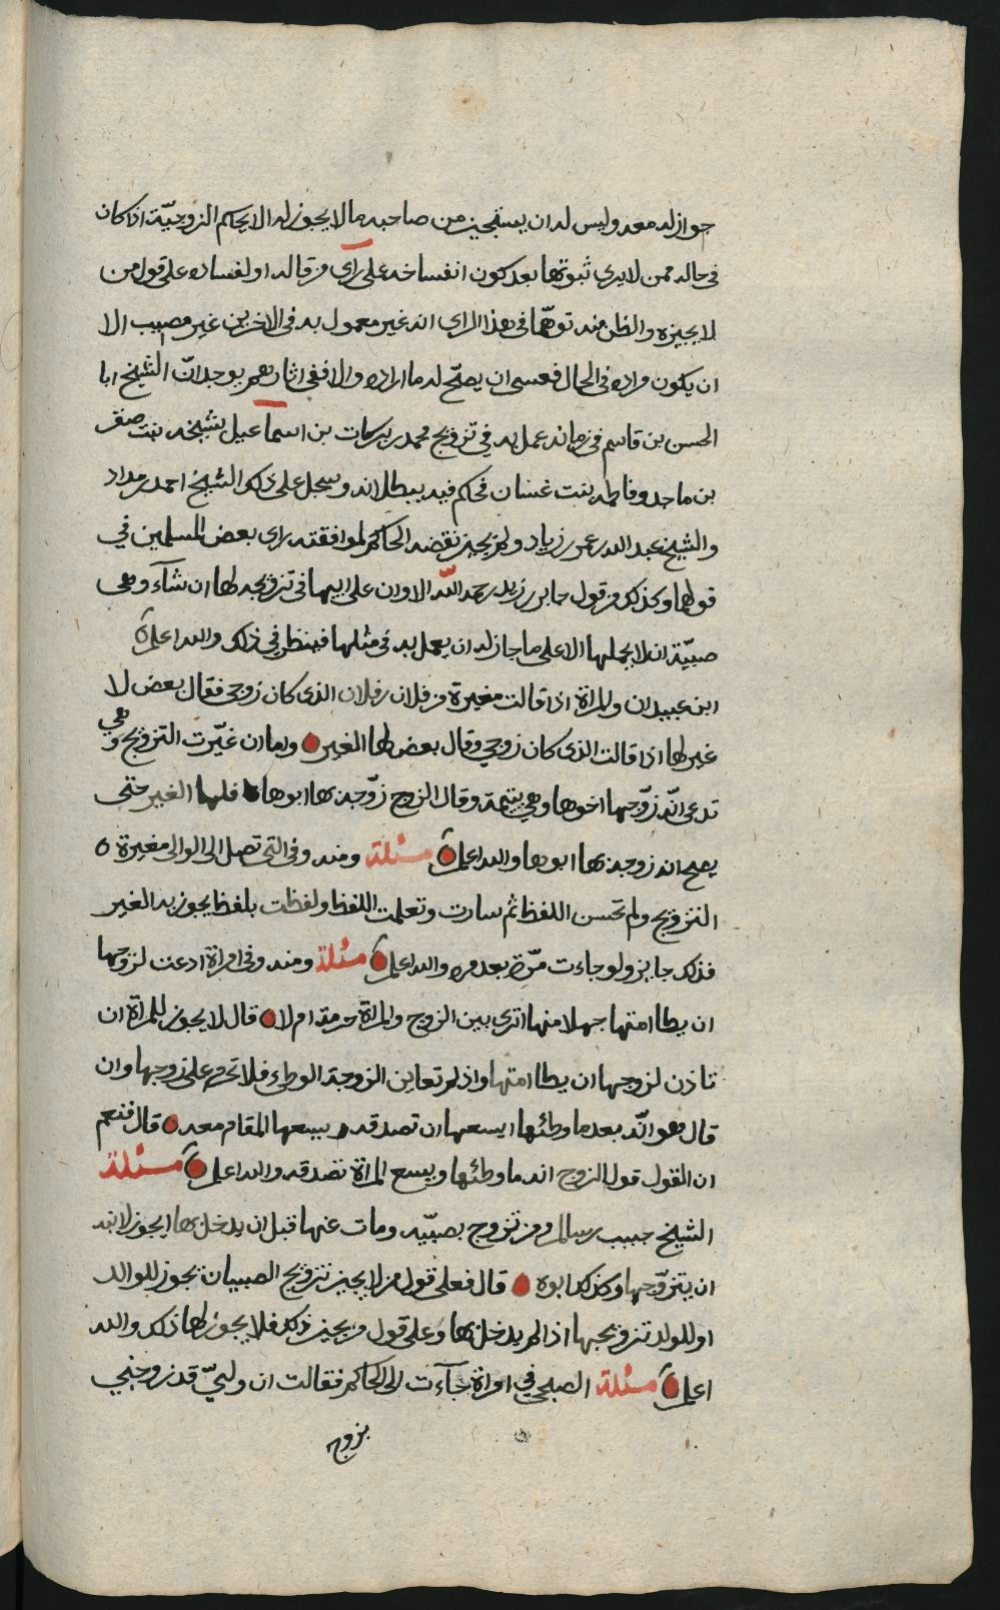 جوازله معه وليس له ان يستجيز من صاحبه مالا يجوز له الا بحكم الزوجيّة اذا كان
في حاله ممن لا يرى ثبوتها بعد كون انفساخه على رأي من قاله او لفساده على قول من
لا يجيزه والظن منه توهّما في هذا الراي انه غير معمول به في الاخرين غير مصيب الا
ان يكون مراده في الحال فعسى ان يصحّ له ما اراده والا ففي اثارهم يوجد انّ الشيخ ابا
الحسن بن قاسم في زمانه عمل به في تزويج محمد بن بركات بن اسماعيل بشيخه بنت صقر
بن ماجد وفاطمه بنت غسان فحكم فيه ببطلانه وسجل على ذلك الشيخ احمد بن مداد
والشيخ عبد الله بن عمر بن زياد ولم يجيز نقضه الحاكم لموافقته راي بعض المسلمين في
قولها وكذلك من قول جابر بن زيد رحمه الله الاوان على ابيها في تزويجه لها ان شآء وهي
صبيّة ان لا يحملها الا على ما جاز له ان يعمل به في مثلها فينظر في ذلك والله اعلم
ابن عبيدان والمراة اذا قالت مغيرة من فلان بن فلان الذى كان زوجي فقال بعض لا
غير لها اذا قالت الذى كان زوجي وقال بعض لها الغير واما ان غيّرت التزويج وهي
تدعى انّه زوّجها اخوها وهي يتيمة وقال الزوج زوّجه بها ابوها فلها الغير حتى
يصح انه زوجه بها ابوها والله اعلم مسئلة ومنه وفى التي تصل الى الوالى مغيرة
التزويج ولم تحسن اللفظ ثم سارت وتعلمت اللفظ ولفظت بلفظ يجوز به الغير
فذلك جايز ولو جاءت مرّة بعد مره والله اعلم مسئلة ومنه وفى امراة ادعت لزوجها
ان يطا امتها جهلا منها اترى بين الزوج والمراة حرمة ام لا قال لا يجوز للمراة ان
تاذن لزوجها ان يطا امتها واذ لم تعاين الزوجة الوطي فلا تحرم على زوجها وان
قال هو انّه بعد ما وطئها ايسعها ان تصدقه ويسعها المقام معه قال فنعم
ان القول قول الزوج انه ما وطئها ويسع المراة تصدقه والله اعلم مسئلة
الشيخ حبيب بن سالم ومن تزوج بصبيّه ومات عنها قبل ان يدخل بها ايجوز لابنه
ان يتزوّجها وكذلك ابوه قال فعلى قول من لا يجيز تزويج الصبيان يجوز للوالد
او للولد تزويجها اذا لم يدخل بها وعلى قول من يجيز ذلك فلا يجوز لها ذلك والله
اعلم مسئلة الصبحي في امراة جآءت الى الحاكم فقالت ان وليّ قد زوجني
بزوج